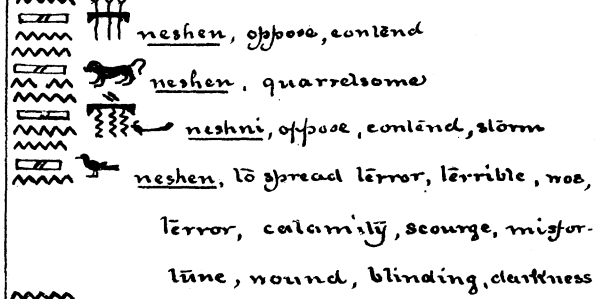 neshen, oppose, contend
neshen, quarrelsome
neshni, oppose, contend, storm
neshen, to spread terror, terrible, woe,
terror, calamity, scourge, misfor-
tune, wound, blinding, darkness